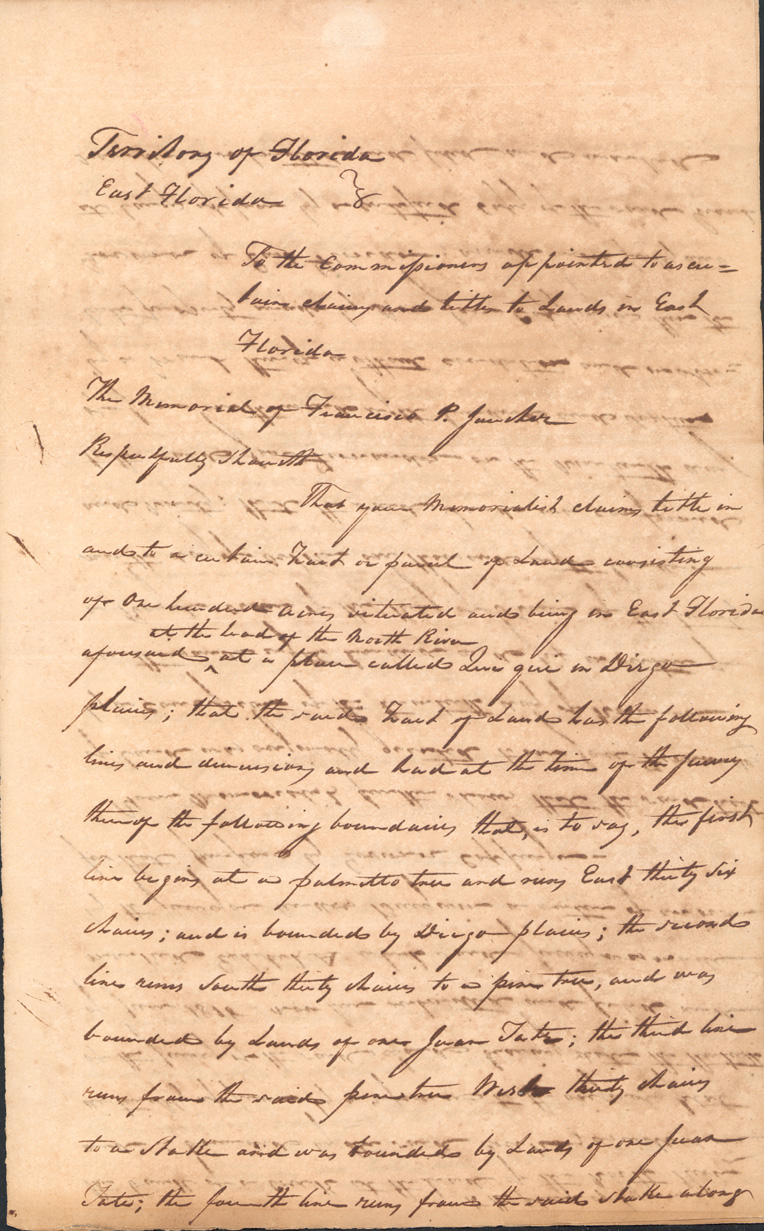 Territory of Florida
East Florida
To the Commissioners appointed to ascer=
tain claims and titles to Lands in East
Florida
The Memorial of Francisco P.
Respectfully Sheweth
That your Memorialist claims title in
and to a certain Tract or parcel of Land consisting
of One hundred acres situated and being in East Florida
at the head of the North River
aforesaid ^ at a place called in Diego
plains; that the said Tract of Land has the following
lines and dimensions and had at the time of the survey
thereof the following boundaries that, is to say, the first
line begins at a palmetto tree and runs East thirty six
chains; and is bounded by Diego plains; the second
line runs South thirty chains to a pine tree, and was
bounded by Lands of one Juan Tate; the third line
runs from the said pine tree West thirty chains
to a Stake and was bounded by Lands of one Juan
Tate; the fourth line runs from the said stake along